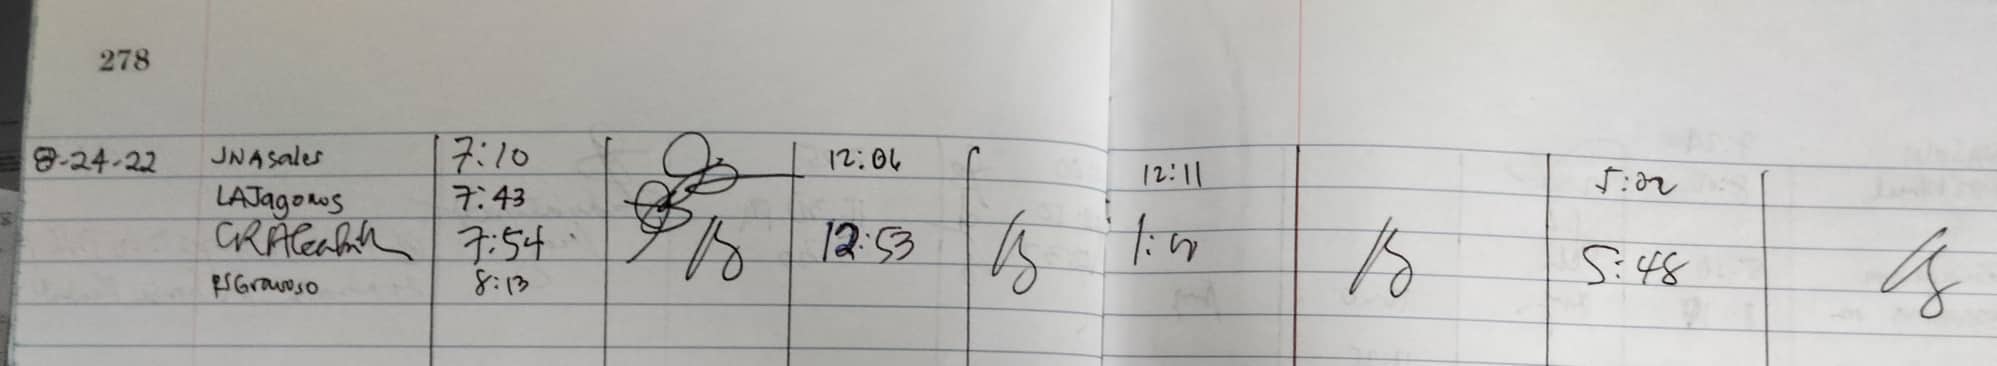 278
8-24-22 JNASales 7:10 12:06 12:11 5:02
LAJagonos 7:43
7:54 12:53 5:48
8:13